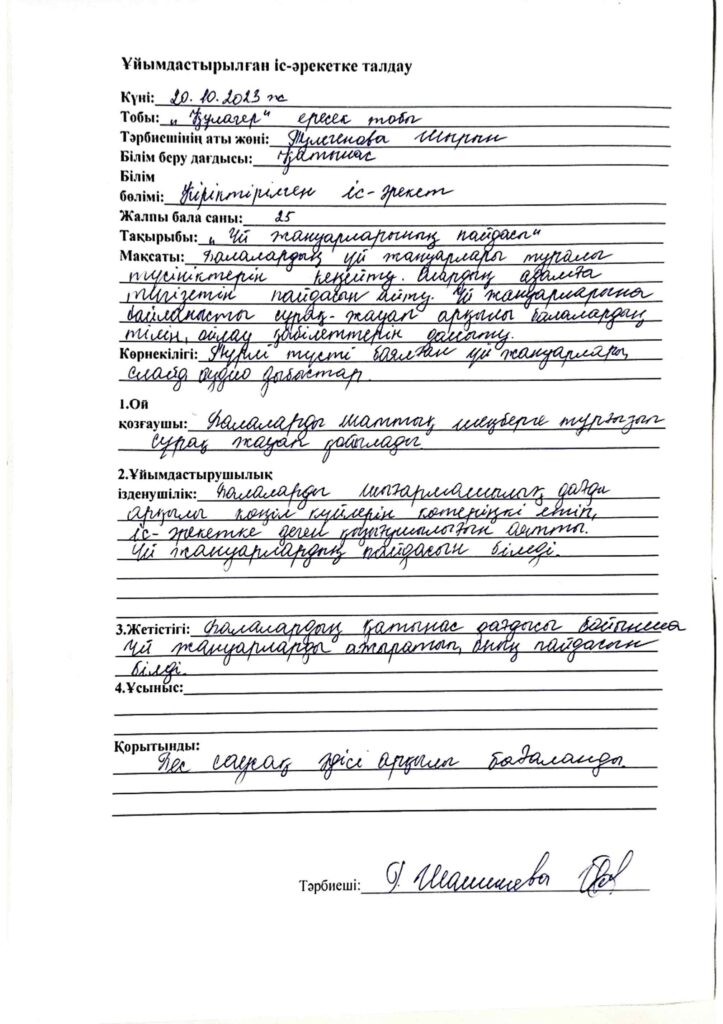 Ұйымдастырылған іс-әрекетке талдау
Күні: 20.10.2023 ж
Тобы: "Құлагер" ересек тобы
Тәрбиешінің аты жөні: Түлегенова Шырын
Білім беру дағдысы: Қатынас
Білім
бөлімі: Кіріктірілген іс-әрекет
Жалпы бала саны: 25
Тақырыбы: "Үй жануарларының пайдасы"
Мақсаты: Балалардың үй жануарлары туралы
түсініктерін кеңейту. Олардың адамға
тигізетін пайдасын айту. Үй жануарларына
байланысты сұрақ-жауап арқылы балалардың
тілін, ойлау қабілеттерін дамыту.
Көрнекілігі: Түрлі түсті баялған үй жануарлары,
слайд аудио дыбыстар.
1.Ой
қозғаушы: Балаларды шаттық шеңберге тұрғызып
сұрақ жауап қойылады.
2.Ұйымдастырушылық
ізденушілік: Балаларды шығармашылық дағды
арқылы көңіл күйлерін көтеріңкі етіп,
іс-әрекетке деген қызығушылығын аятты.
Үй жануарлардың пайдасын біледі.
3.Жетістігі: Балалардың қатынас дағдысы бойынша
үй жануарларды ажыратып, оның пайдасын
білді.
4.Ұсыныс:
Қорытынды:
Бес саусақ әдісі арқылы бағаланды.
Тәрбиеші: Г.